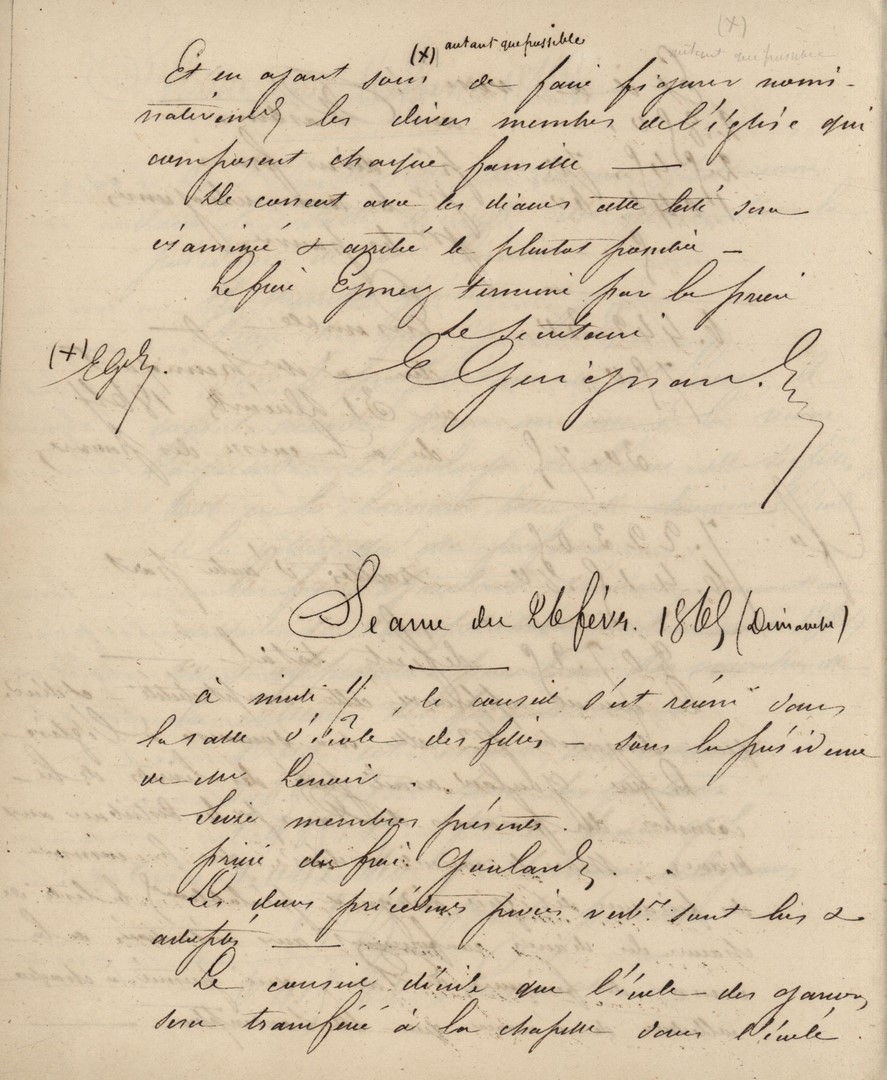 (x) autant que possible
Et en ayant soin de faire figurer nomi-
nativement les divers membres de l'église qui
composent chaque famille —
De concert avec les diacres cette liste sera
examinée & arrêtée le plutot possible —
Le frère Eymery termine par la prière
Le Secrétaire
E Guignard
(x) EGd.
Séance du 26 févr. 1865 (Dimanche)
à midi 1/2, le conseil s'est réuni dans
la salle d'école des filles — sous la présidence
de Mr Lenoir.
Seize membres présents.
prière du frère Goulard.
Les deux précédents procès verb. sont lus &
adoptés —
Le conseil décide que l'école des garçons
sera transférée à la chapelle dans l'école